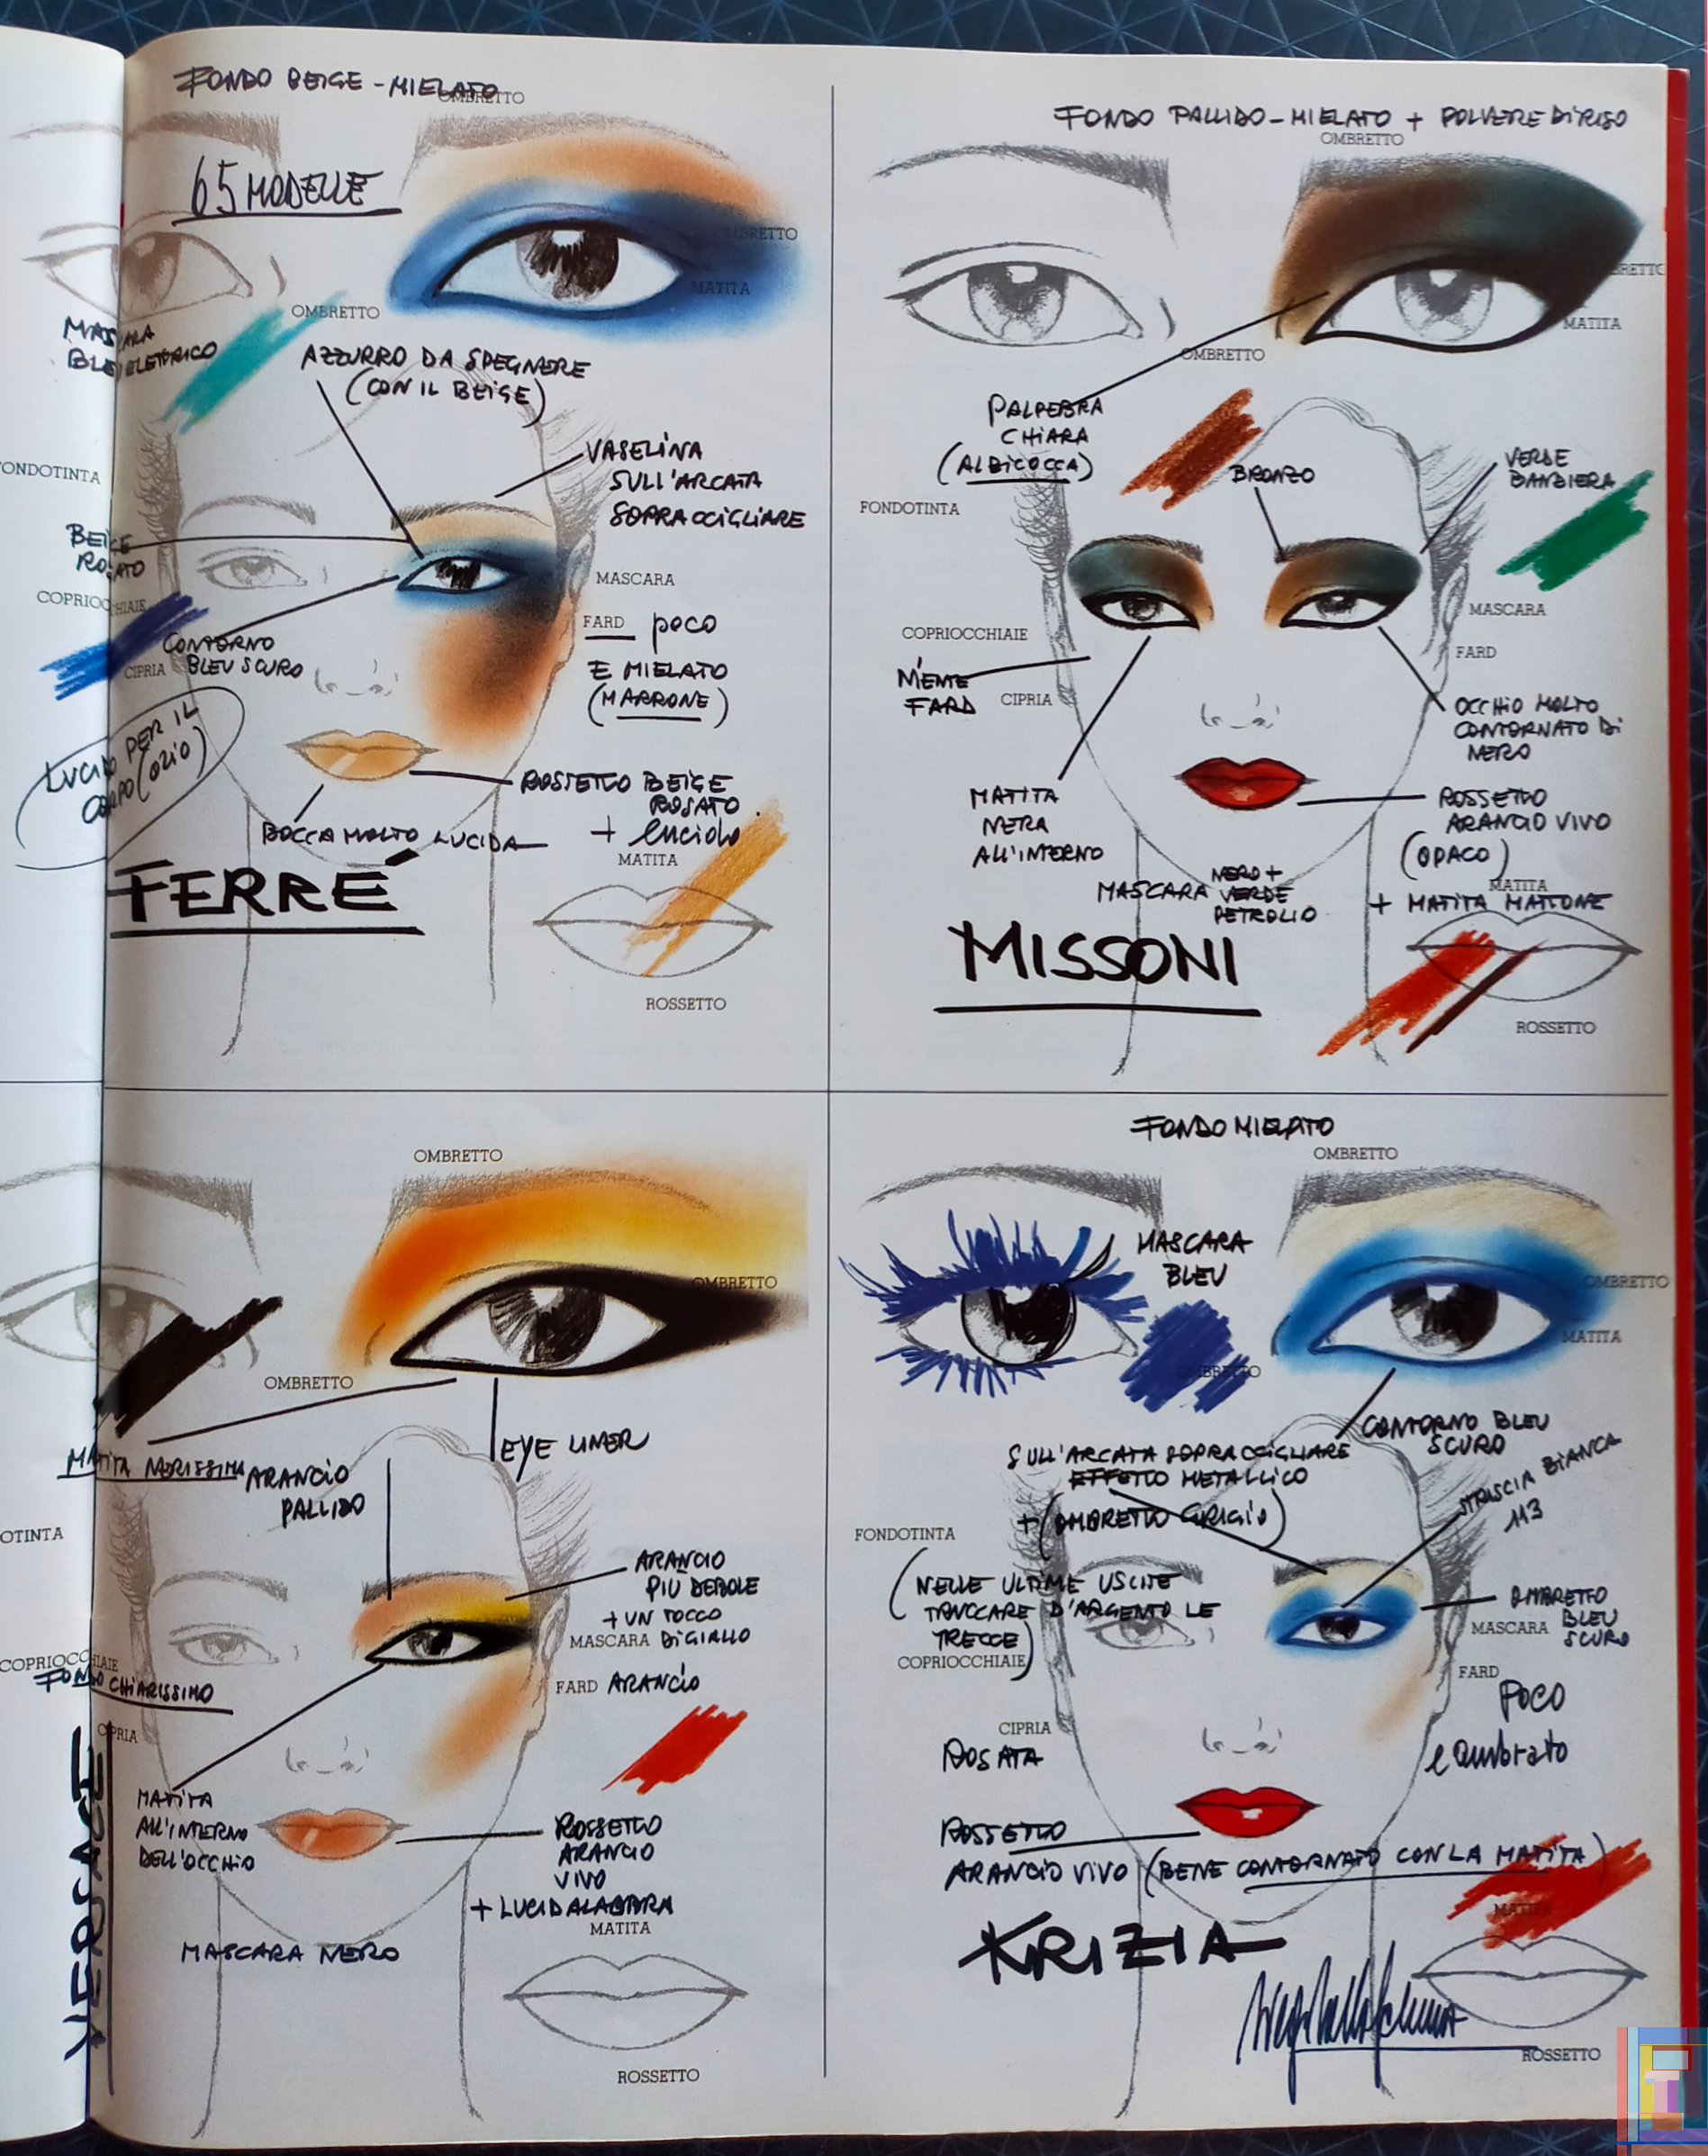 FONDO BEIGE - MIELATO
OMBRETTO
65 MODELLE
OMBRETTO
MATITA
OMBRETTO
MASCARA
BLEU ELETTRICO
AZZURRO DA SPEGNERE
(CON IL BEIGE)
VASELINA
SULL'ARCATA
SOPRACCIGLIARE
FONDOTINTA
BEIGE
ROSATO
MASCARA
COPRIOCCHIAIE
FARD poco
E MIELATO
(MARRONE)
CONTORNO
BLEU SCURO
CIPRIA
LUCIDO PER IL
CORPO (OLIO)
ROSSETTO BEIGE
ROSATO
+ lucido
BOCCA MOLTO LUCIDA
MATITA
FERRÉ
ROSSETTO
FONDO PALLIDO - MIELATO + POLVERE DI RISO
OMBRETTO
BRETTO
MATITA
OMBRETTO
PALPEBRA
CHIARA
(ALBICOCCA)
BRONZO
VERDE
BANDIERA
FONDOTINTA
MASCARA
COPRIOCCHIAIE
FARD
NIENTE
FARD
CIPRIA
OCCHIO MOLTO
CONTORNATO DI
NERO
MATITA
NERA
ALL'INTERNO
ROSSETTO
ARANCIO VIVO
(OPACO)
MASCARA NERO +
VERDE
PETROLIO
MATITA
+ MATITA MATTONE
MISSONI
ROSSETTO
OMBRETTO
OMBRETTO
OMBRETTO
MATITA NERISSIMA
EYE LINER
ARANCIO
PALLIDO
OTINTA
ARANCIO
PIÙ DEBOLE
+ UN TOCCO
DI GIALLO
MASCARA
COPRIOCCHIAIE
FONDO CHIARISSIMO
FARD ARANCIO
CIPRIA
MATITA
ALL'INTERNO
DELL'OCCHIO
ROSSETTO
ARANCIO
VIVO
+ LUCIDALABBRA
MATITA
MASCARA NERO
VERSACE
ROSSETTO
FONDO MIELATO
OMBRETTO
MASCARA
BLEU
OMBRETTO
MATITA
OMBRETTO
CONTORNO BLEU
SCURO
SULL'ARCATA SOPRACCIGLIARE
EFFETTO METALLICO
+ (OMBRETTO GRIGIO)
STRISCIA BIANCA
113
FONDOTINTA
(NELLE ULTIME USCITE
TRUCCARE D'ARGENTO LE
TRECCE)
OMBRETTO
BLEU
SCURO
MASCARA
COPRIOCCHIAIE
FARD
Poco
CIPRIA
ROSATA
ROSSETTO
ARANCIO VIVO (BENE CONTORNATO CON LA MATITA)
MATITA
KRIZIA
ROSSETTO